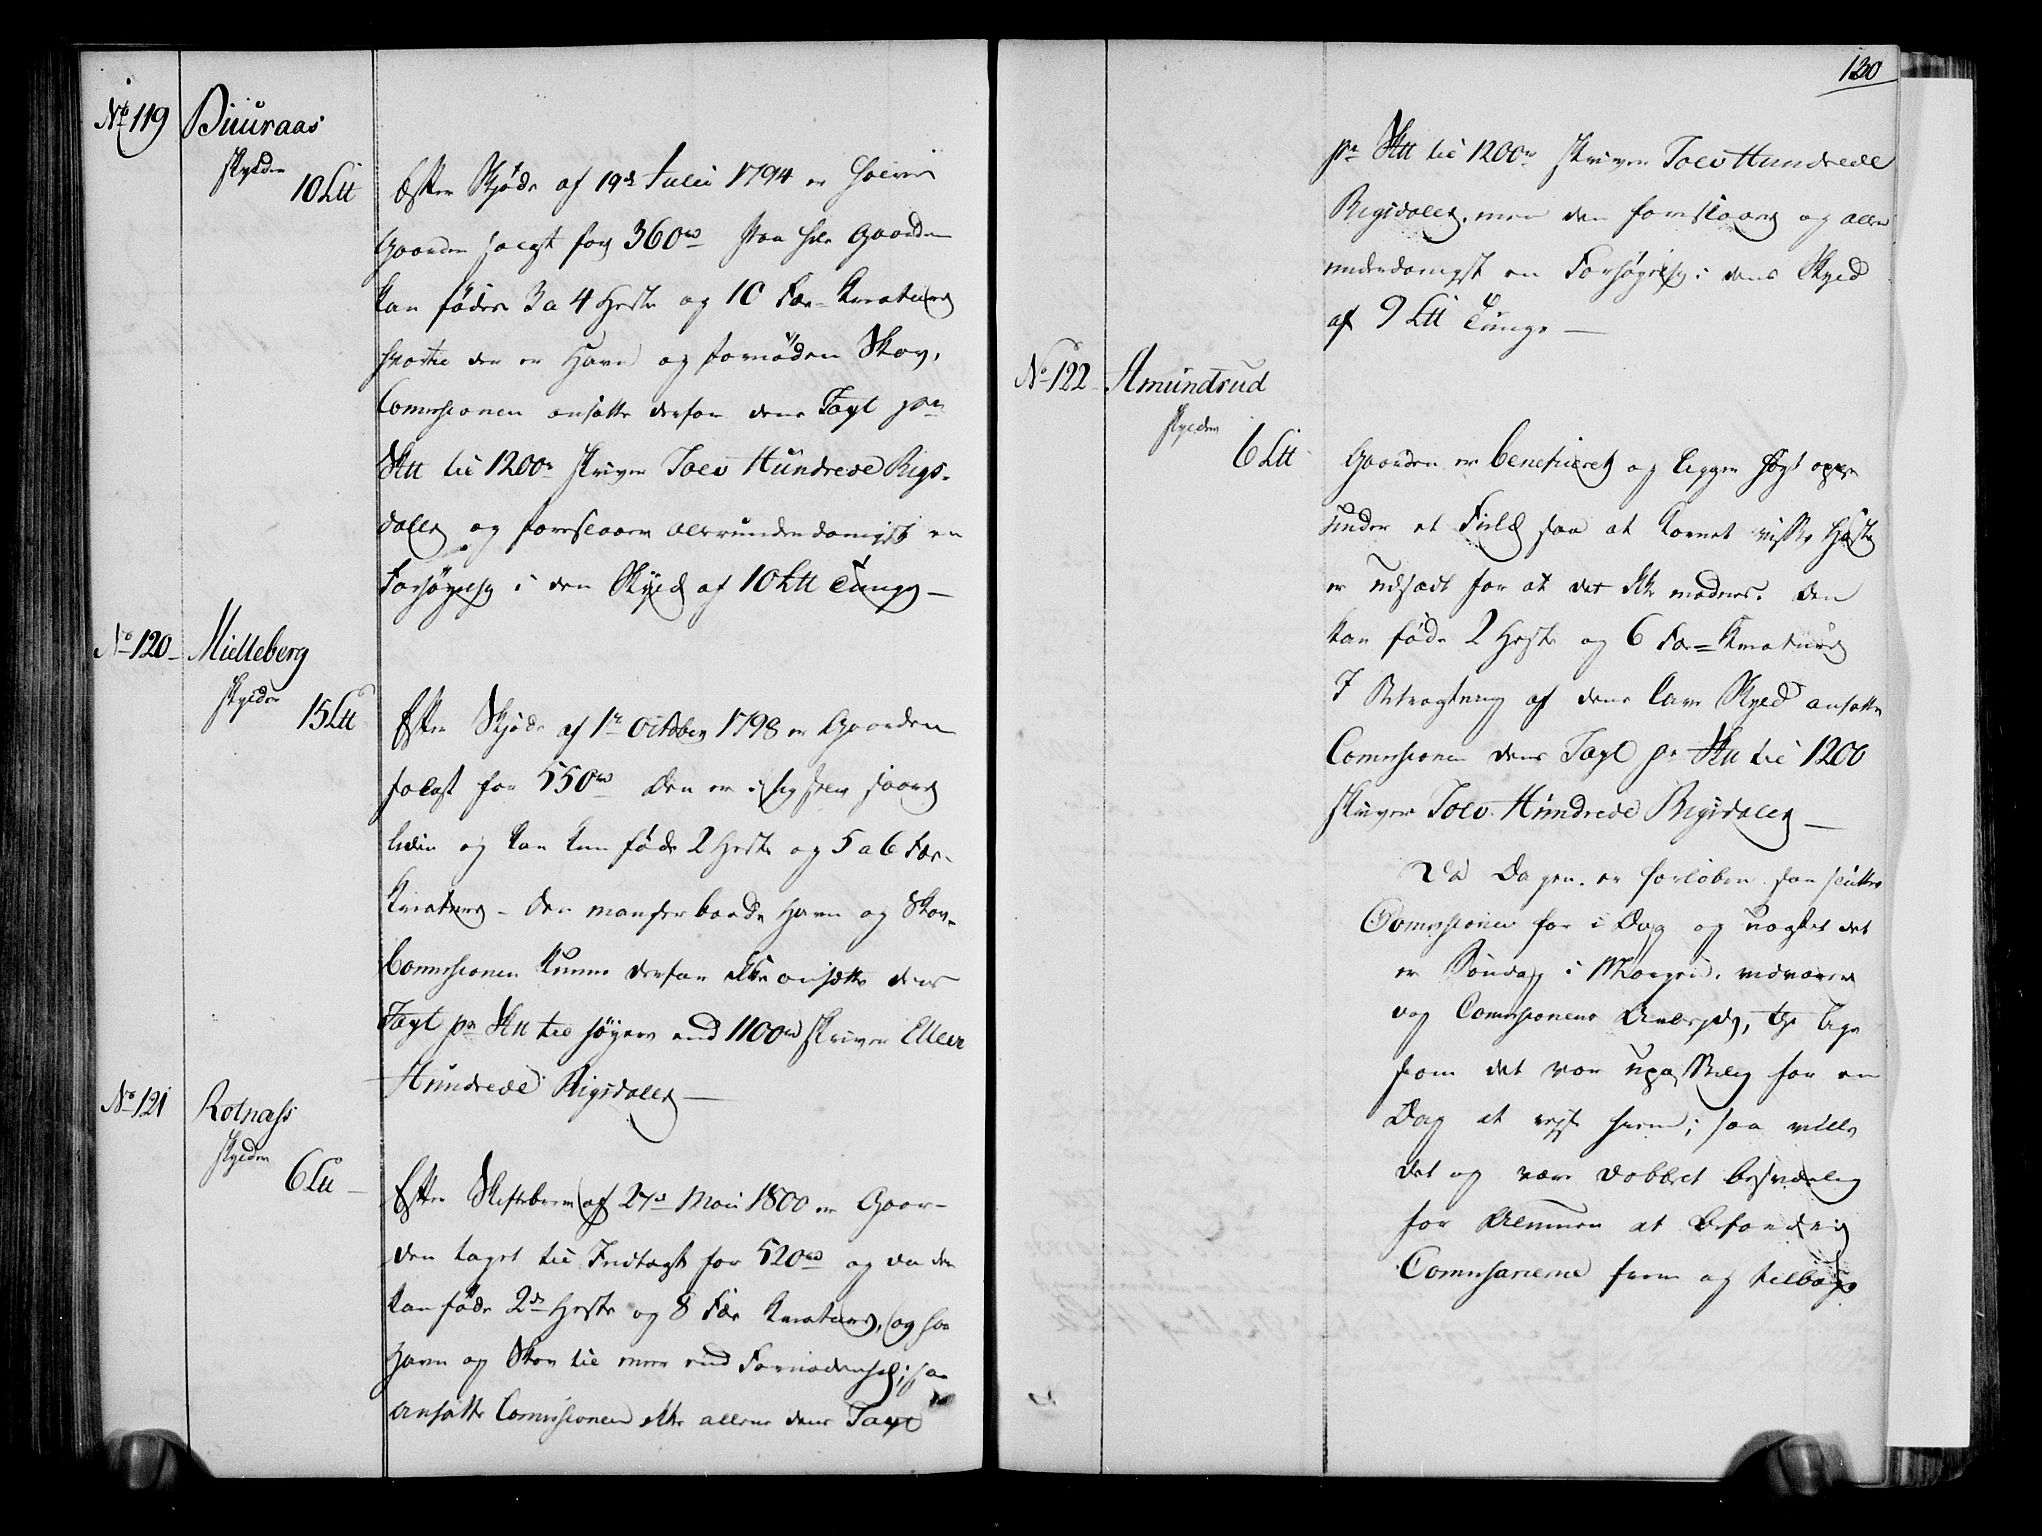 No 119 Buuraas
skylder
10 Ltt
Efter Skjøde af 19de Julii 1794 er halve
Gaarden solgt for 360rd Paa hele Gaarden
kan fødes 3 a 4 Heste og 10 Fæe-Kreature
hvortil der er Havn og fornøden Skov,
Comissionen ansatte derfor dens Taxt pr
Sktt til 1200r skriver Tolv Hundrede Rigs-
daler og foreslaaer allerunderdanigst en
Forhøyelse i den Skyld af 10 Ltt Tunge —
No 120 Mielleberg
skylder
15 Ltt
Efter Skjøde af 1te October 1798 er Gaarden
solgt for 550rd Den er i sig selv haard
og kan kun føde 2 Heste og 5 a 6 Fæe-
Kreature - den mangler baade Havn og Skov-
Comissionen kunne derfor ikke ansætte dens
Taxt pr Sktt til høyere end 1100rd skriver Elleve
Hundrede Rigsdaler —
No 121 Rotnass
skylder
6 Ltt
Efter Skiftebrev af 27de Maii 1800 er Gaar-
den taget til Indtægt for 520rd og da den
kan føde 2de Heste og 8 Fæe Kreature, og har
Havn og Skov til mere end Fornødenhed; saa
ansatte Comissionen ikke allene dens Taxt
130
pr Sktt til 1200r skriver Tolv Hundrede
Rigsdaler, men den foreslaaer og aller
underdanigst en Forhøyelse i dens Skyld
af 9 Ltt Tunge —
No 122 Amundsrud
skylder
6 Ltt
Gaarden er beneficeret og ligger høyt oppe
under et Field saa at Kornet visse Høste
er udsadt for at det ikke modnes. Den
kan føde 2 Heste og 6 Fæ=Kreature
I Betragtning af dens lave Skyld ansatte
Comissionen dens Taxt pr Sktt til 1200
skriver Tolv Hundrede Rigsdaler —
Da Dagen er forløben saa slutter
Comissionen for i Dag og uagtet det
er Søndag i Morgen, vedvarer
dog Comissionens Arbeyde, thi lige
som det var upasselig for en
Dag at reyse hiem; saa ville
det og være dobbelt besværlig
for Almuen at befordre
Comissarierne frem og tilbage